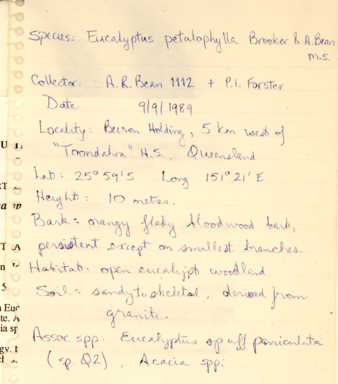 Species: Eucalyptus petalophylla Brooker & A.Bean
m.s.
Collector: A.R.Bean 1112 + P.I. Forster
Date 9/9/1989
Locality: Beeron Holding, 5 km west of
"Toondahra" H.S., Queensland
Lat: 25°59'S Long 151°21'E
Height: 10 metres.
Bark: orangy flaky bloodwood bark,
persistent except on smallest branches.
Habitat: open eucalypt woodland
Soil: sandy to skeletal, derived from
granite.
Assoc spp: Eucalyptus sp aff paniculata
(sp. Q2), Acacia spp.